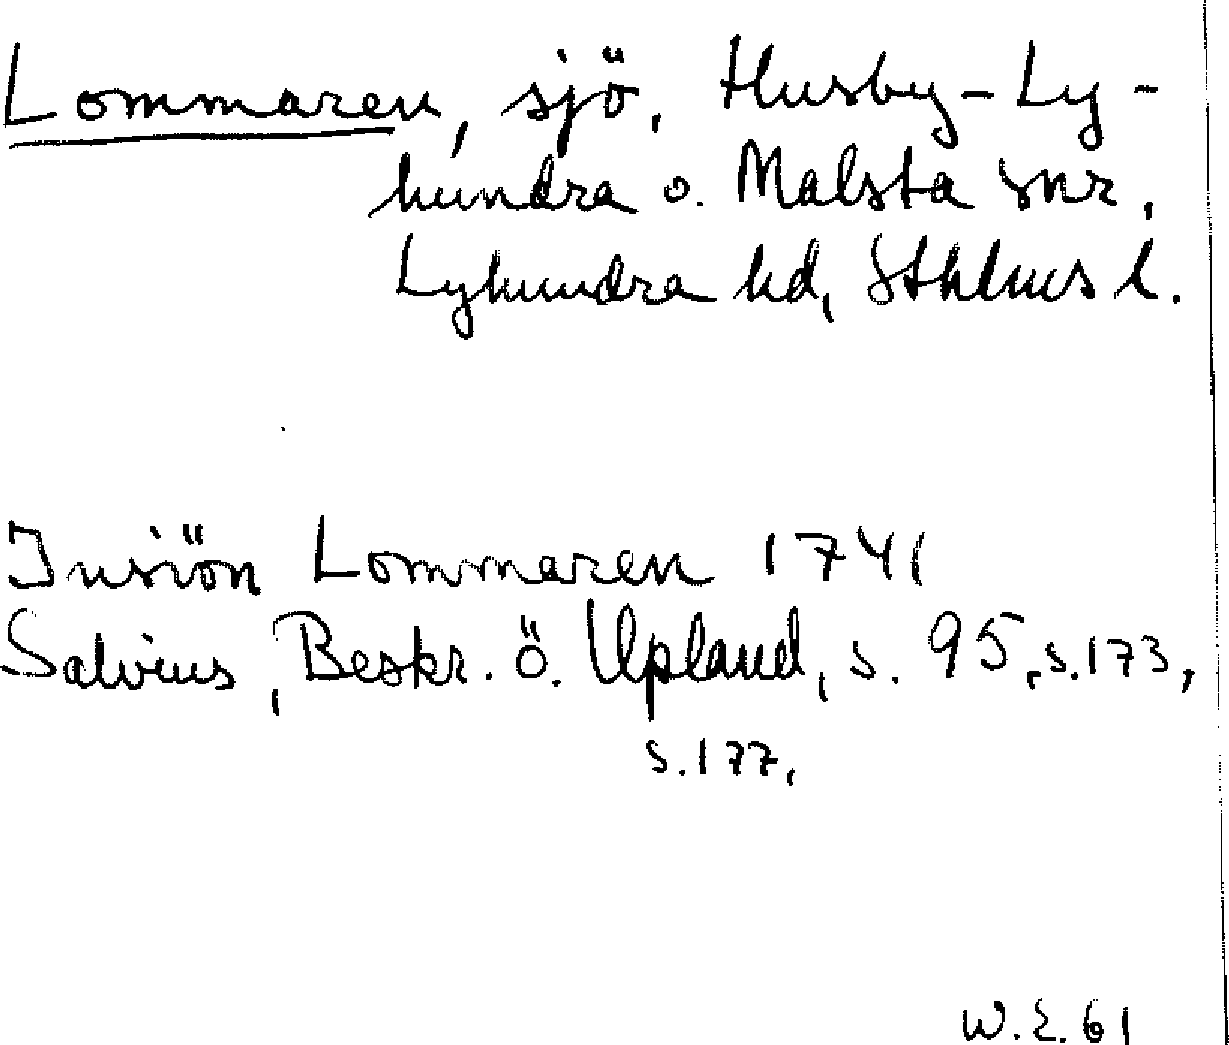 Lommaren, sjö, Husby-Ly-
hundra o. Malsta snr,
Lyhundra hd, Sthlms l.
Insiön Lommaren 1741
Salvius, Beskr. ö. Upland, s. 95, s. 173,
s. 177,
W. E. 61